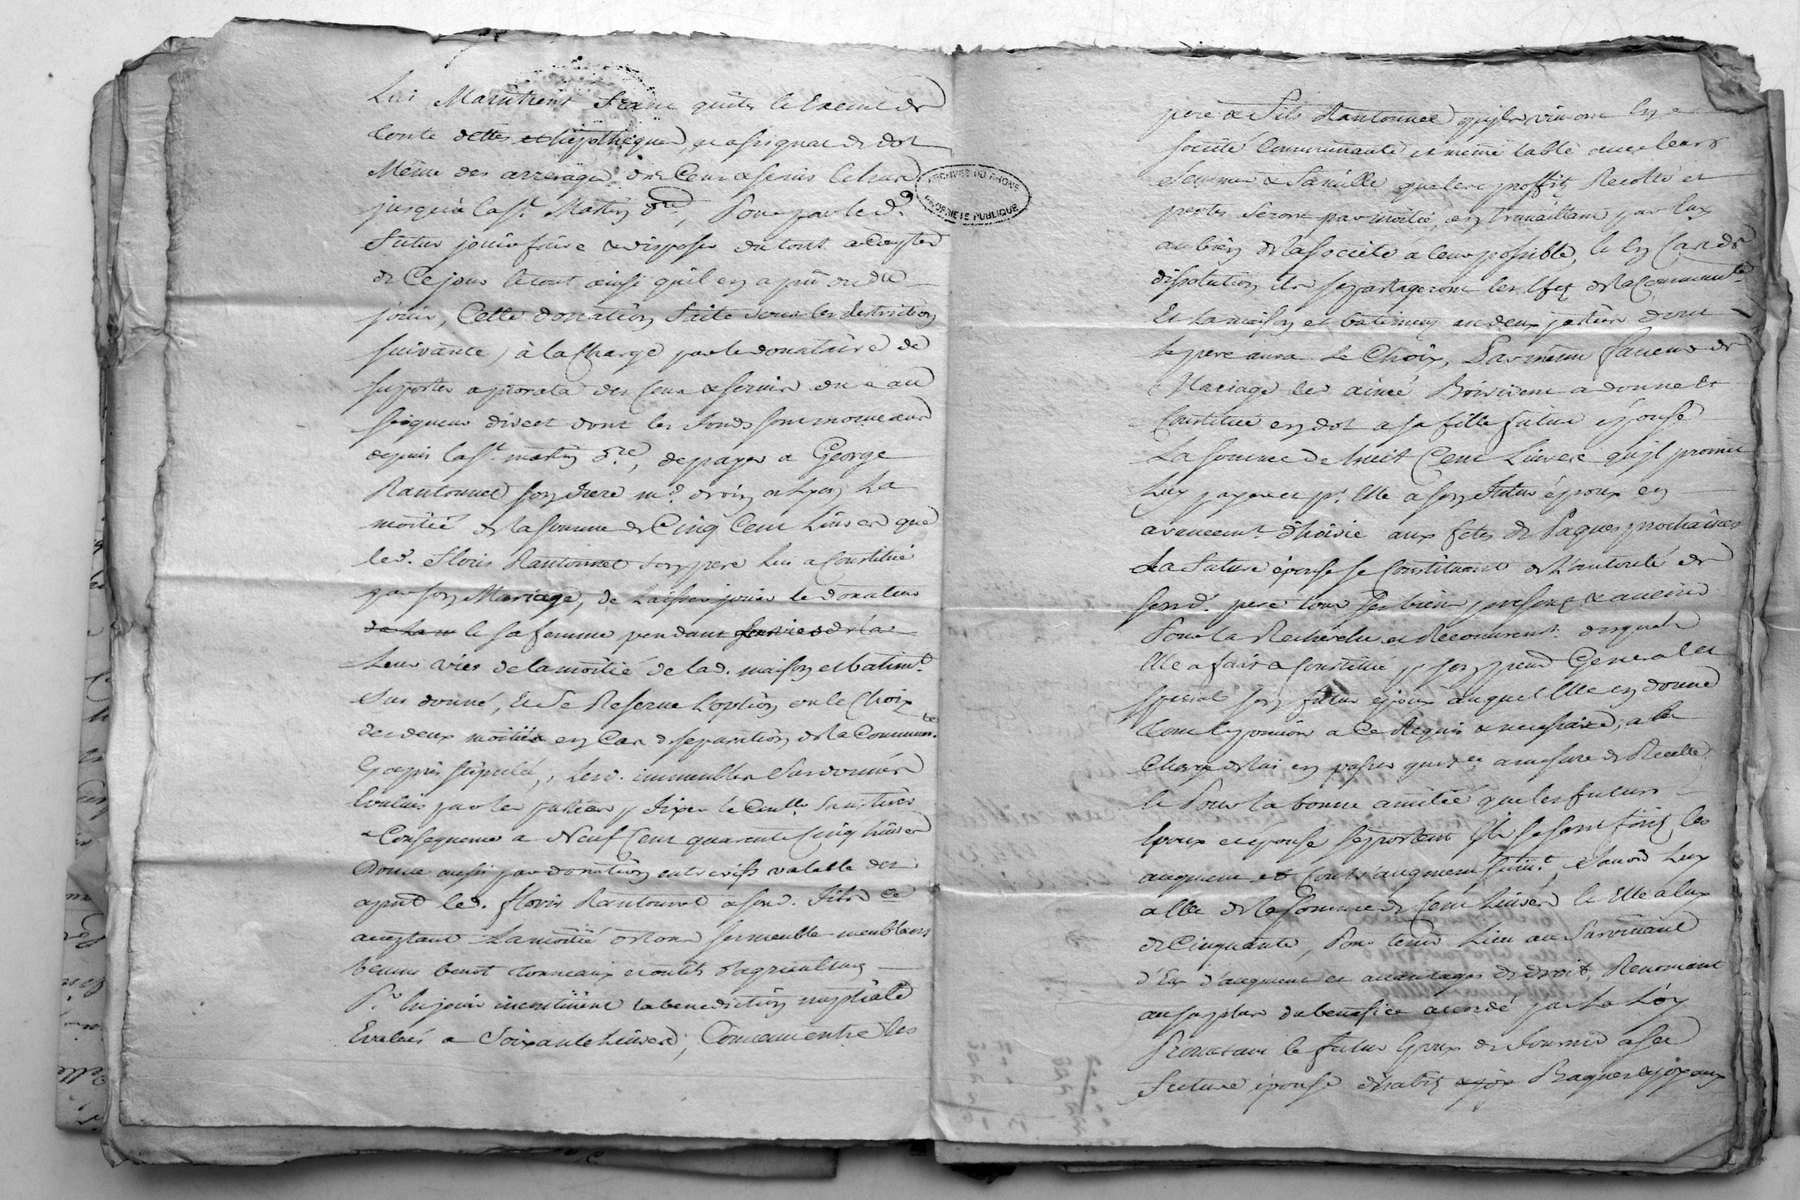 Lui Maintient franc quite le exemt de
toute dettes et hipotheques, et assignat de dot
Même des arrerages des Cens & servis Echeus
jusqu'a la St. Martin dre, Pour par le d.
futur jouir faire & disposer du tout a Compter
de Ce jour le tout ainsi qu'il en a pu ou du
jouir, Cette donation faite sous les Restrictions
suivantes, à la Charge par le donataire de
suporter a prorata des Cens & servis du a au
seigneur direct dont les fonds sont mouvans
depuis la St. martin dre, de payer a George
Rantonnet son frere md. a Lyon La
moitié de la somme de Cinq Cent Livres que
le d. floris Rantonnet son pere lui a Constitué
par son Mariage, de laisser jouir le donateur
le sa femme pendant
Leurs vies de la moitié de la d. maison et batimt.
sus donné, le se Reserve L'option ou le Choix
des deux moitiés en Cas de separation de la Communté.
Cy apres stipulée, Lesd. immeubles sus donnés
Evalués par les parties
Consequence a Neuf Cent quarente Cinq livres
Donne aussi par donation entre vifs valable des
apnt. le d. floris Rantonnet a son d. fils Ce
acceptant La moitié de tous ses meubles meublans
tonneaux et outils d'agriculture
Pr. En jouir incontinent la benediction nuptiale
Evalués a Soixante Livres, Convenu entre les
ARCHIVES DU RHONE
PROPRIETE PUBLIQUE
pere & fils Rantonnet qu'ils vivront En
société Communauté et même table avec leurs
femmes & famille que les proffits Recolte et
pertes seront par moitié, en travaillant par Eux
au bien de la société a leur possible, le En Cas de
disolution ils se partageront les Effets de la Communté.
Et la maison et batiments en deux parties dont
le pere aura Le Choix, Par même faveur de
Mariage led. aimé a donne &
Constitué en dot a sa fille future épouse
La somme de huit Cent Livres qu'il promet
Luy payer et pr. Elle a son futur époux en
avancemt. d'hoirie aux fetes de Paques prochaines
La future épouse se Constituant de L'autorité de
sond. pere tous ses biens presents & avenir
Pour la Recherche et Recouvremt. desquels
Elle a fait & Constitué pr. son procr. General et
special son futur époux auquel Elle en donne
tout le pouvoir a Ce Requis & necessaire, a la
Charge de lui en passer quittce. a mesure de Recette
le Pour la bonne amitié que les futurs
Epoux et epouse se portent Ils se sont faits les
augment et Contr'augment suivt. savoir Lux
a Elle de la somme de Cent Livres le Elle a lux
de Cinquante, Pour tenir Lieu au Survivant
d'Eux d'augment et avantages de droit, Renonçant
au surplus du benefice accordé par La Loy
Promettant le futur Epoux de fournir a sa
future épouse d'habits Bagues & joyaux